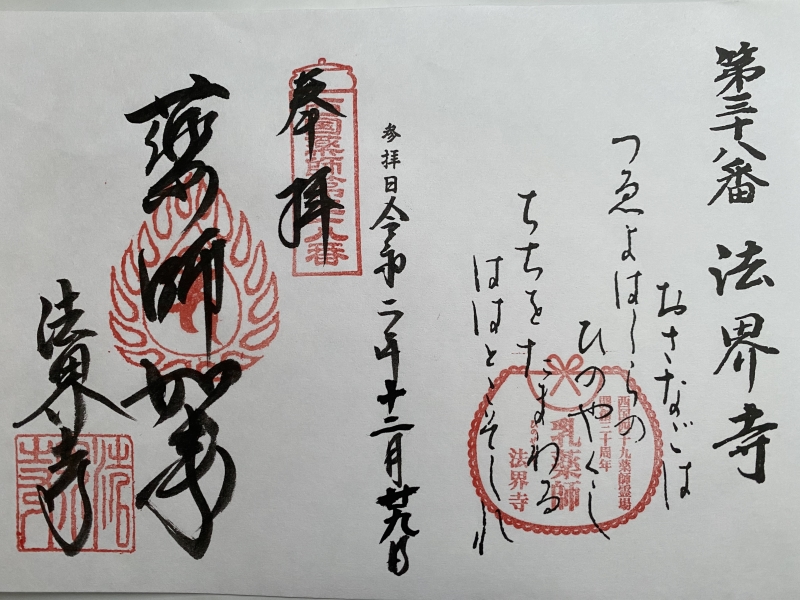 第三十八番 法界寺
おさなごは
つゑよはしらの
ひのやくし
ちちをたまわる
ははとこそしれ
西国四十九薬師霊場
開創三十周年
乳薬師
法界寺
参拝日 令和二年十二月廿九日
奉拝
薬師如来
法界寺